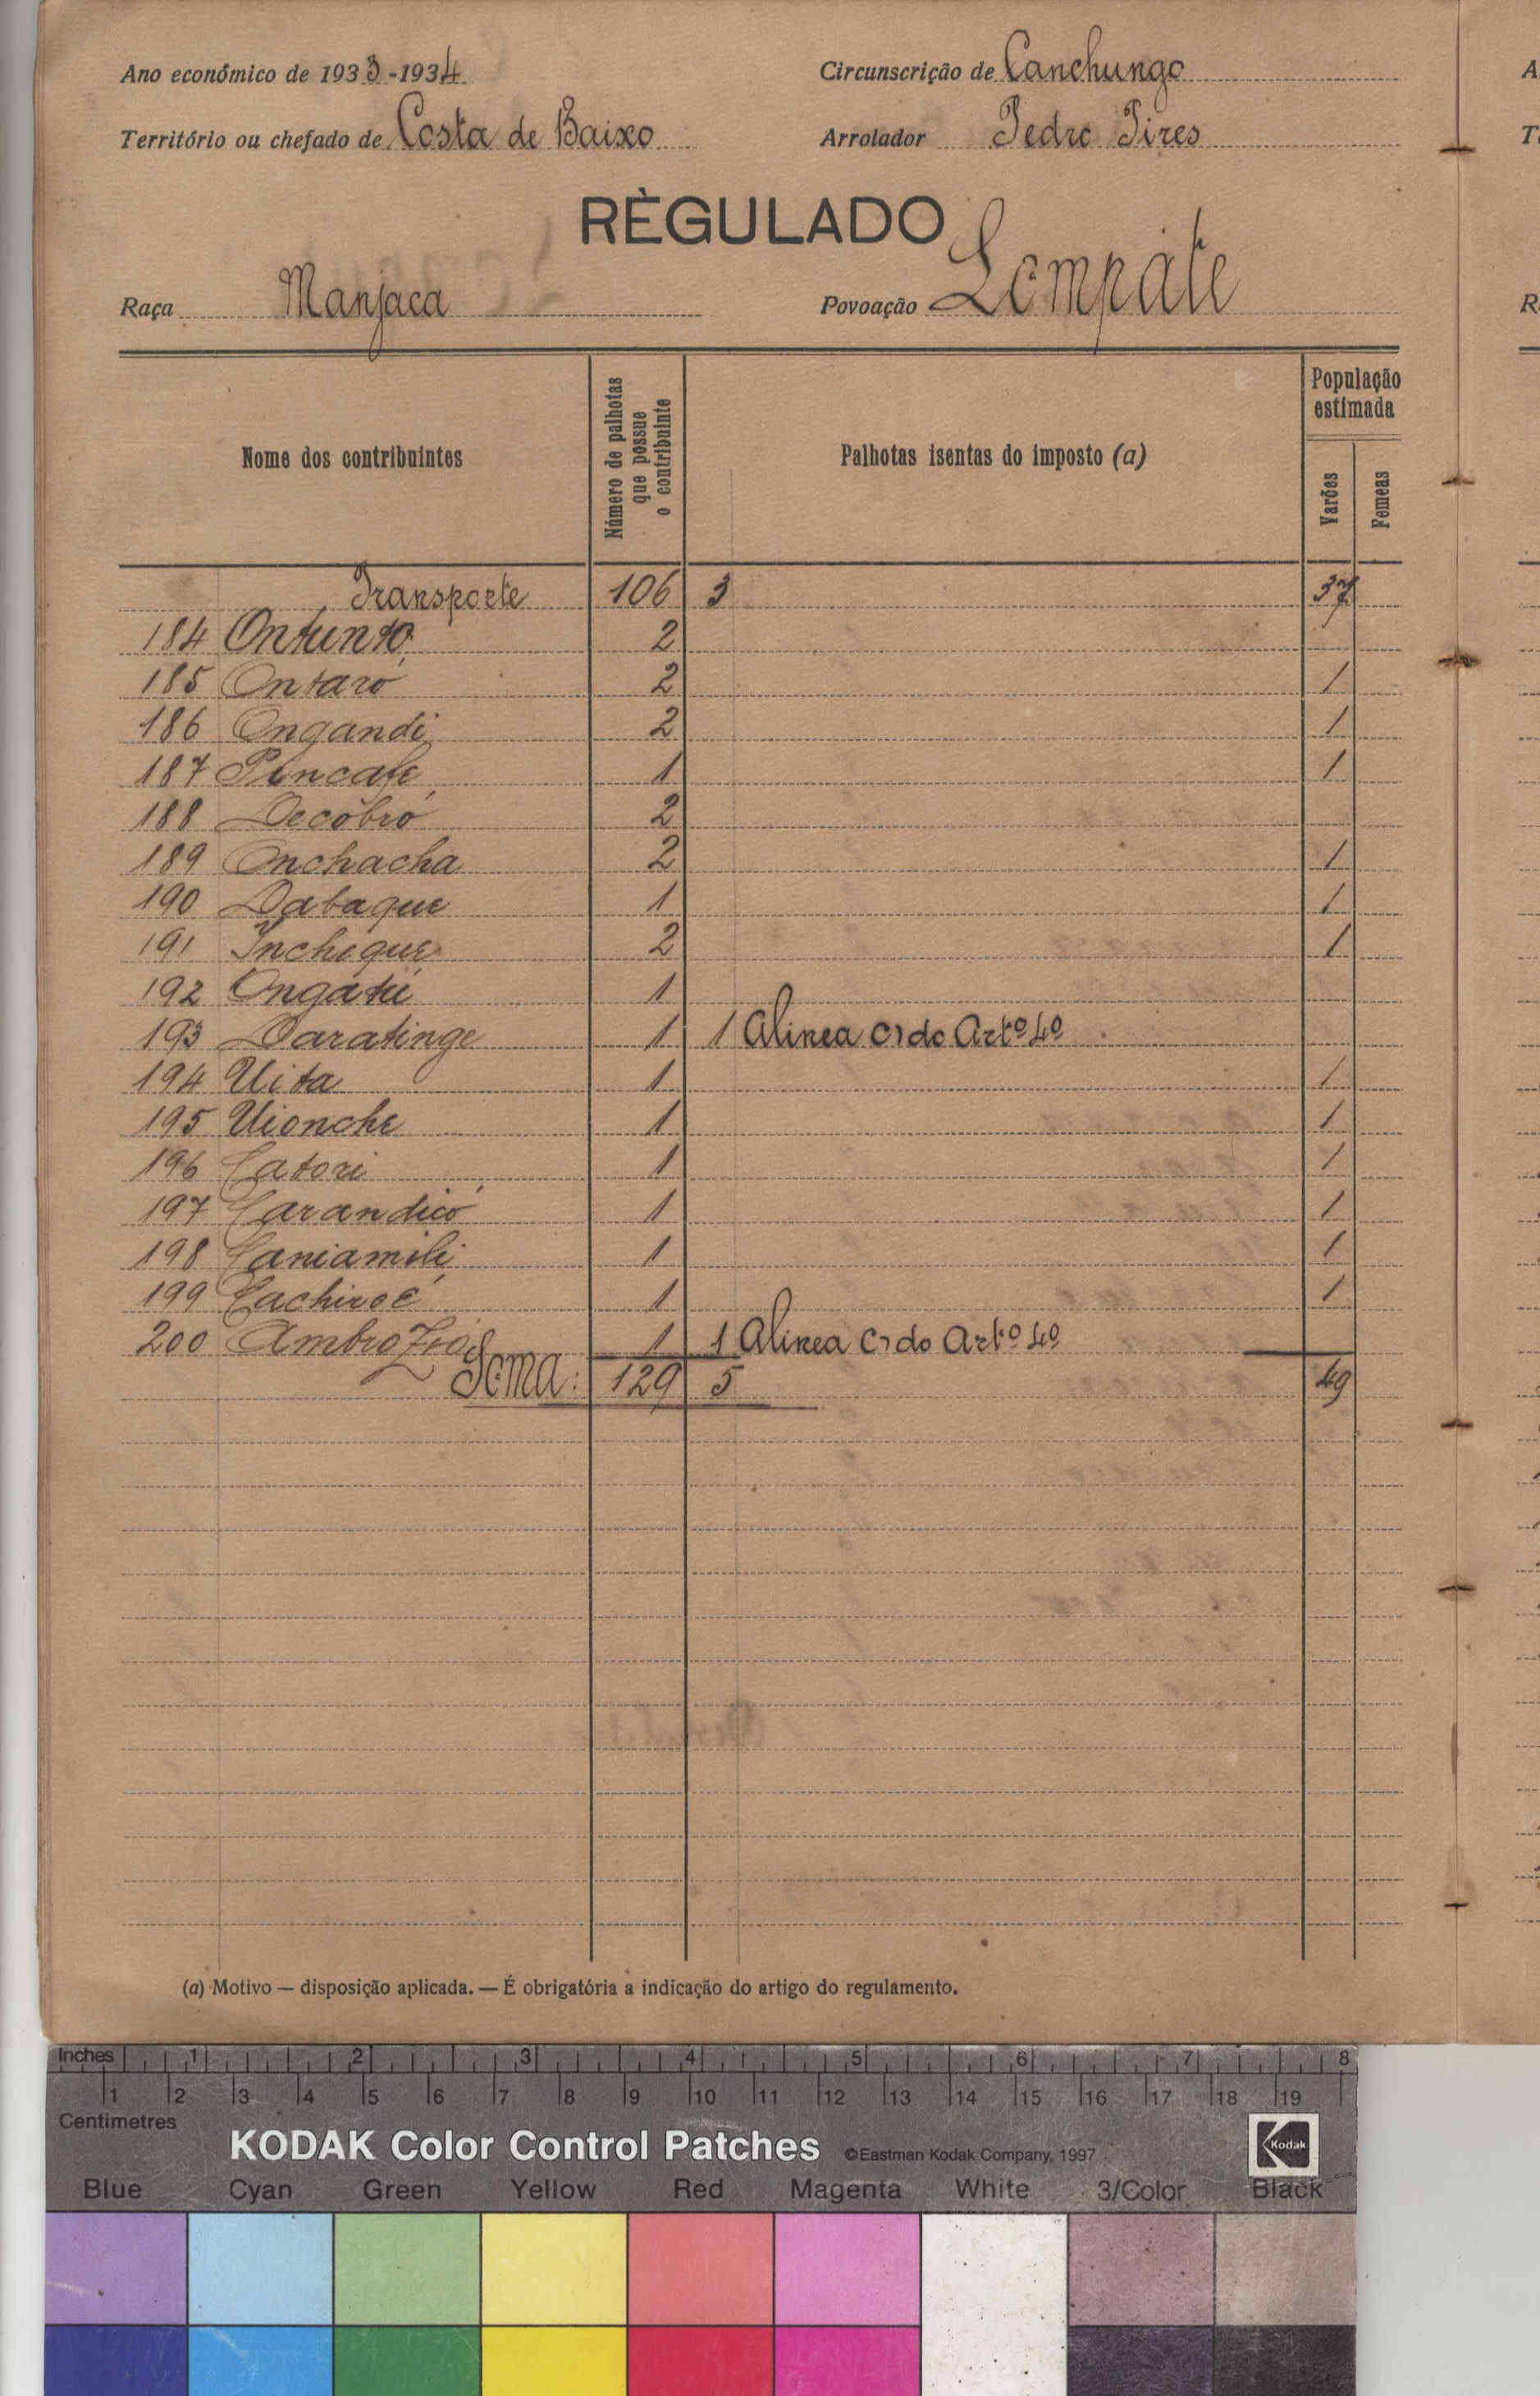 Ano económico de 1933-1934 Circunscrição de Canchungo
Território ou chefado de Costa de Baixo Arrolador Pedro Pires
RÈGULADO
Raça Manjaca Povoação Lompate
Nome dos contribuintes
Número de palhotas que possue o contribuinte
Palhotas isentas do imposto (a)
População estimada
Varões
Femeas
Transporte 106 3 37
184 Ontunto 2
185 Ontaró 2 1
186 Ongandi 2 1
187 Pincafe 1 1
188 Decobró 2
189 Onchacha 2 1
190 Dabaque 1 1
191 Incheque 2 1
192 Ongátu 1
193 Daratinge 1 1 Alinea c) do Artº 4º
194 Uita 1 1
195 Uionche 1 1
196 Catori 1 1
197 Carandicó 1 1
198 Caniamili 1 1
199 Cachiroé 1 1
200 Ambrozió 1 1 Alinea c) do Artº 4º
Soma: 129 5 49
(a) Motivo — disposição aplicada. — É obrigatória a indicação do artigo do regulamento.
Inches 1 2 3 4 5 6 7 8
1 2 3 4 5 6 7 8 9 10 11 12 13 14 15 16 17 18 19
Centimetres
KODAK Color Control Patches ©Eastman Kodak Company, 1997 Kodak
Blue Cyan Green Yellow Red Magenta White 3/Color Black